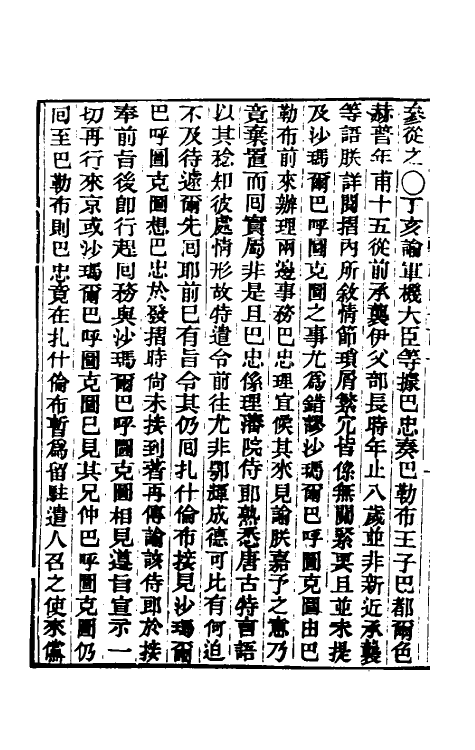 參從之○丁亥諭軍機大臣等據巴忠奏巴勒布王子巴都爾色
赫普年甫十五從前承襲伊父部長時年止八歲並非新近承襲
等語朕詳閱摺內所敘情節瑣屑繁冗皆係無關緊要且並未提
及沙瑪爾巴呼圖克圖之事尤為錯謬沙瑪爾巴呼圖克圖由巴
勒布前來辦理兩邊事務巴忠理宜俟其來見諭朕嘉予之意乃
竟棄置而回實屬非是且巴忠係理藩院侍郎熟悉唐古特言語
以其稔知彼處情形故特遣令前往尤非鄂輝成德可比有何迫
不及待遽爾先回耶前已有旨令其仍回扎什倫布接見沙瑪爾
巴呼圖克圖想巴忠於發摺時尚未接到著再傳諭該侍郎於接
奉前旨後即行起回務與沙瑪爾巴呼圖克圖相見遵旨宣示一
切再行來京或沙瑪爾巴呼圖克圖已見其兄仲巴呼圖克圖仍
回至巴勒布則巴忠竟在扎什倫布暫為留駐遣人召之使來儻